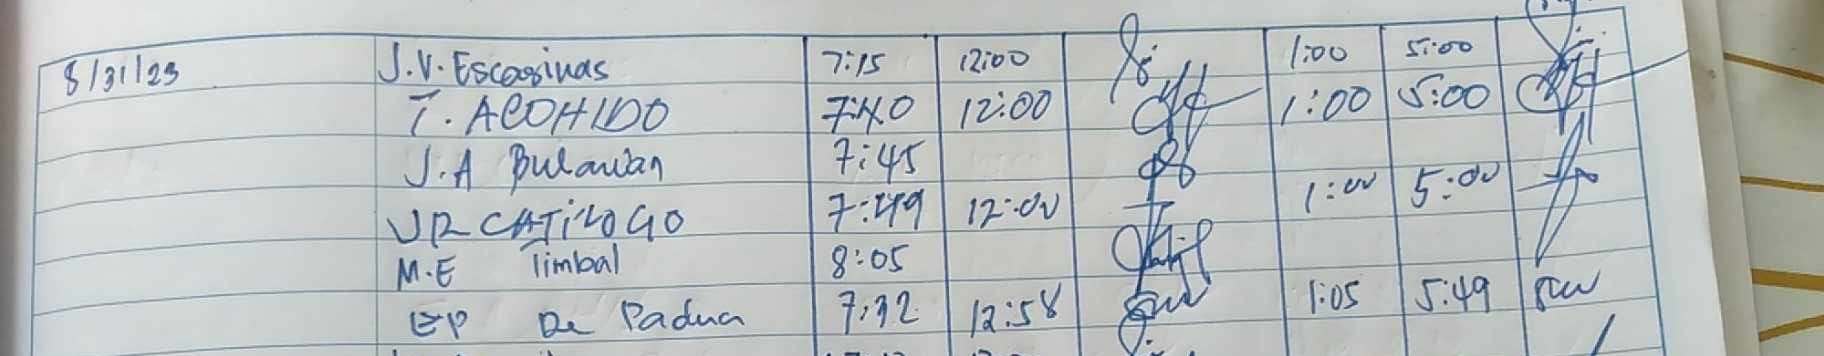 8/31/23 J.V. Escasinas 7:15 12:00 1:00 5:00
T. ACOHIDO 7:40 12:00 1:00 5:00
J.A Bulawan 7:45
JR CATiLOGO 7:49 12:00 1:00 5:00
M.E Timbal 8:05
EP De Padua 7:32 12:58 1:05 5:49